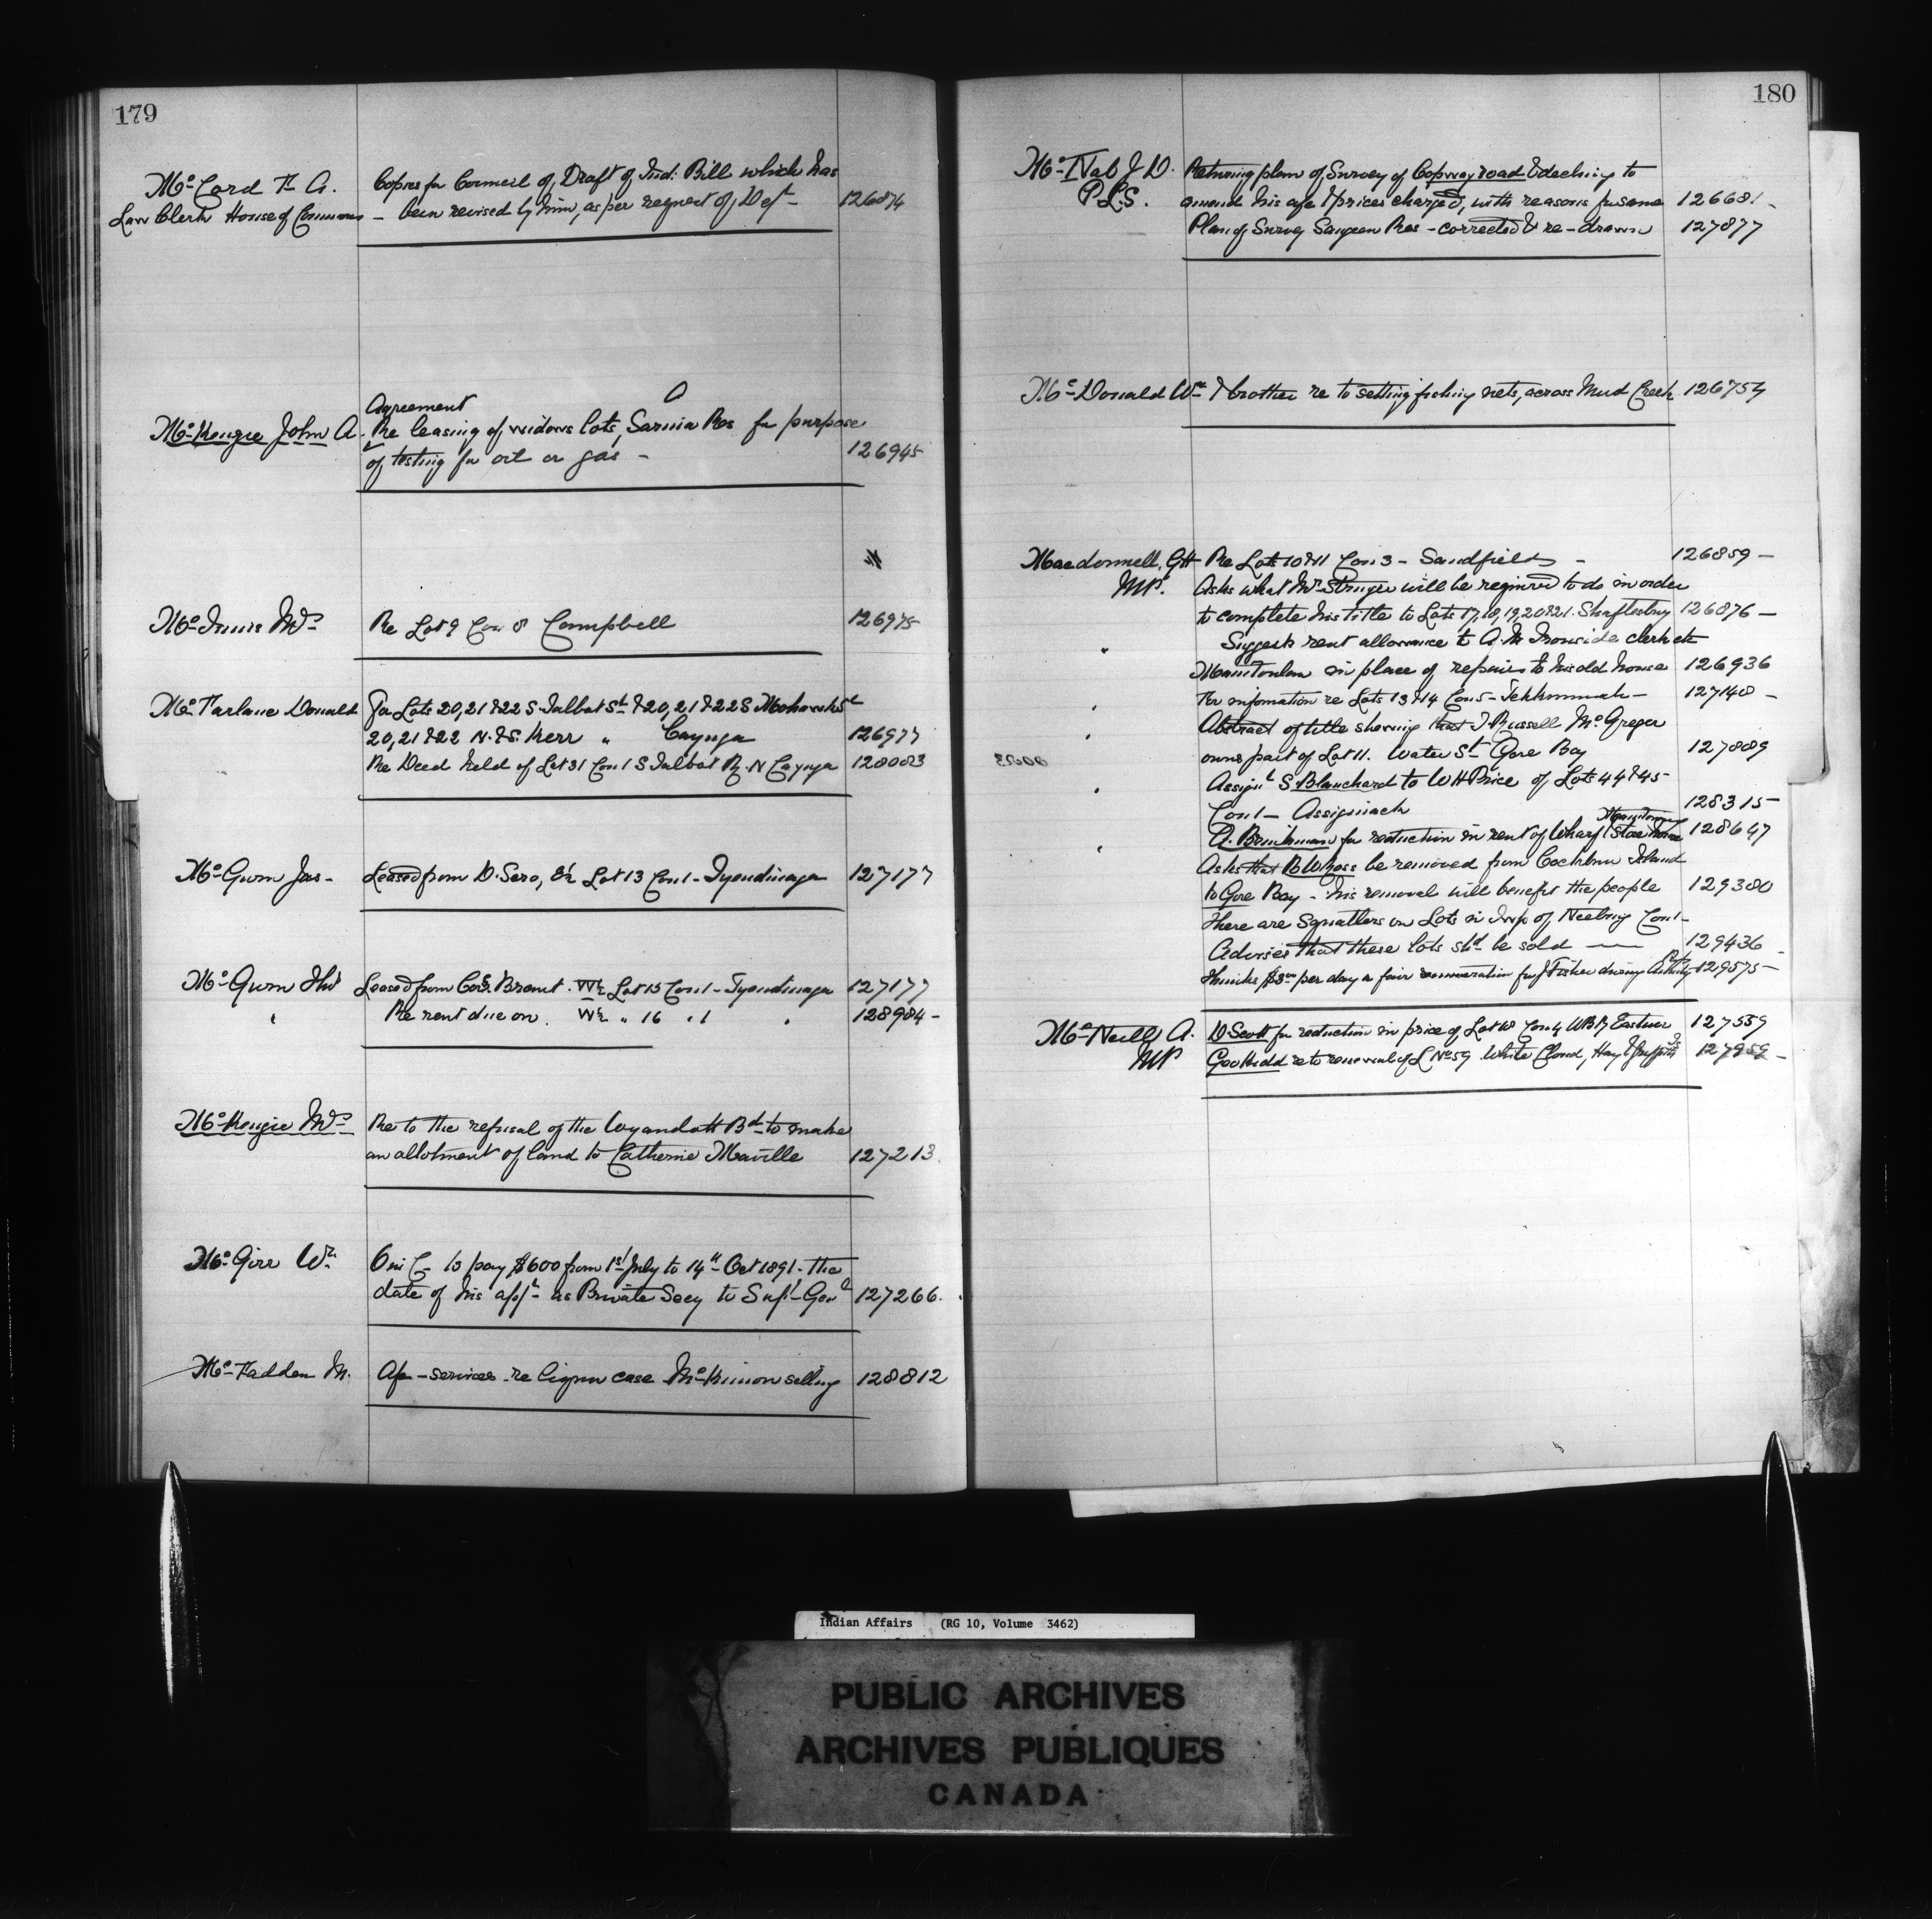 179
Mc Cord F. A.
Law Clerk House of Commons
Copies for Council of Draft of Ind: Bill which has
been revised by him, as per request of Dept 126874
Agreement
McKenzie John A. Re leasing of widows lots, Sarnia Res for purpose
of testing for oil or gas - 126945
McInnis Wm Re Lot 9 Con 8 Campbell 126975
McFarlane Donald For Lots 20, 21 & 22 S Talbot St & 20, 21 & 22 S Mohawk St
20, 21 & 22 N. & S. Kerr " Cayuga 126977
Re Deed held of Lot 31 Con 1 S Talbot R. N Cayuga 128083
McGurn Jas - Leased from D. Sero, E½ Lot 13 Con 1 - Tyendinaga 127177
McGurn Thos Leased from Brant. W½ Lot 15 Con 1 - Tyendinaga 127177
" Re rent due on. W½ " 16 " 1 " 128984 -
McKenzie Wm Re to the refusal of the Wyandott Bd to make
an allotment of land to Catherine Maville 127213
McGirr Wm O in C to pay $600 from 1st July to 14th Oct 1891 - the
date of his appt as Private Secy to Supt Genl 127266.
McFadden M. A/c - services - re liquor case McKinnon selling 128812
180
McNab J D. Returning plan of Survey of Copway road & declining to
P.L.S. amend his a/c & prices charged, with reasons for same 126681 -
Plan of Survey Saugeen Res - corrected & re-drawn 127877
McDonald Wm & brother re to setting fishing nets, across Mud Creek 126754
Macdonnell, GH Re Lots 10 & 11 Con 3 - Sandfield - 126859 -
MP. Asks what Mr Stringer will be required to do in order
to complete his title to Lots 17, 18, 19, 20 & 21. Shaftesbury 126876 -
" Suggests rent allowance to A. M Ironside clerk etc
Manitoulin in place of repairs to his old house 126936
" For information re Lots 13 & 14 Con 5 - Tehkummah - 127148 -
" Abstract of title showing that J Russell McGregor
owns part of Lot 11. Water St Gore Bay 127889
" Assignt S Blanchard to W H Price of Lots 44 & 45
Con 1 - Assiginack 128315 -
" A. Brinkman for reduction in rent of Wharf & Store House 128647
Asks that B W Ross be removed from Cockburn Island
to Gore Bay - his removal will benefit the people 129380
There are Squatters on Lots in Twp of Neebing Con 1 -
Advises that these lots shd be sold — 129436 -
thinks $3.00 per day a fair remuneration for J Fisher during 129575 -
McNeill A. D. Scott for reduction in price of Lot W Con 4 WBR Eastnor 127559
MP Geo Kidd re to renewal of L No 59 White Cloud, Hay & Griffith Is 127959 -
Indian Affairs (RG 10, Volume 3462)
PUBLIC ARCHIVES
ARCHIVES PUBLIQUES
CANADA